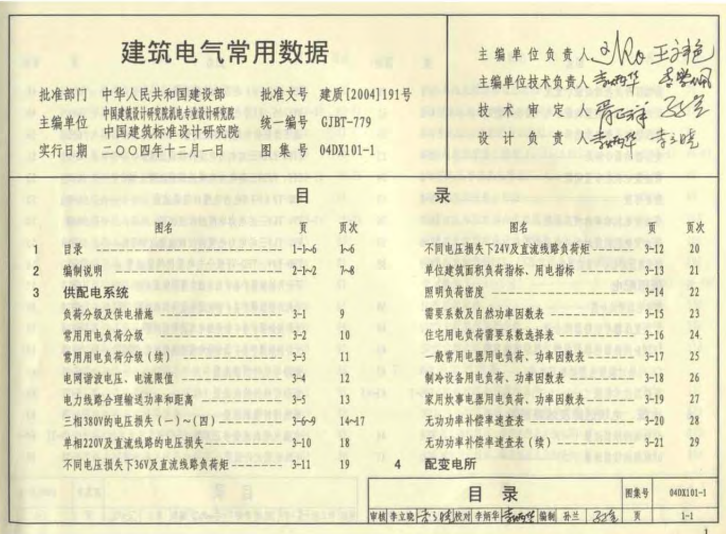 建筑电气常用数据
批准部门 中华人民共和国建设部 批准文号 建质[2004]191号
主编单位 中国建筑设计研究院机电专业设计研究院 中国建筑标准设计研究院 统一编号 GJBT-779
实行日期 二〇〇四年十二月一日 图集号 04DX101-1
主编单位负责人
主编单位技术负责人
技术审定人
设计负责人
目 录
图名 页 页次
1 目录 1-1~6 1~6
2 编制说明 2-1~2 7~8
3 供配电系统
负荷分级及供电措施 3-1 9
常用用电负荷分级 3-2 10
常用用电负荷分级(续) 3-3 11
电网谐波电压、电流限值 3-4 12
电力线路合理输送功率和距离 3-5 13
三相380V的电压损失(一)~(四) 3-6~9 14~17
单相220V及直流线路的电压损失 3-10 18
不同电压损失下36V及直流线路负荷矩 3-11 19
图名 页 页次
不同电压损失下24V及直流线路负荷矩 3-12 20
单位建筑面积负荷指标、用电指标 3-13 21
照明负荷密度 3-14 22
需要系数及自然功率因数表 3-15 23
住宅用电负荷需要系数选择表 3-16 24
一般常用电器用电负荷、功率因数表 3-17 25
制冷设备用电负荷、功率因数表 3-18 26
家用炊事电器用电负荷、功率因数表 3-19 27
无功功率补偿率速查表 3-20 28
无功功率补偿率速查表(续) 3-21 29
4 配变电所
目 录 图集号 04DX101-1
审核 李立晓 校对 李炳华 编制 孙兰 页 1-1
1